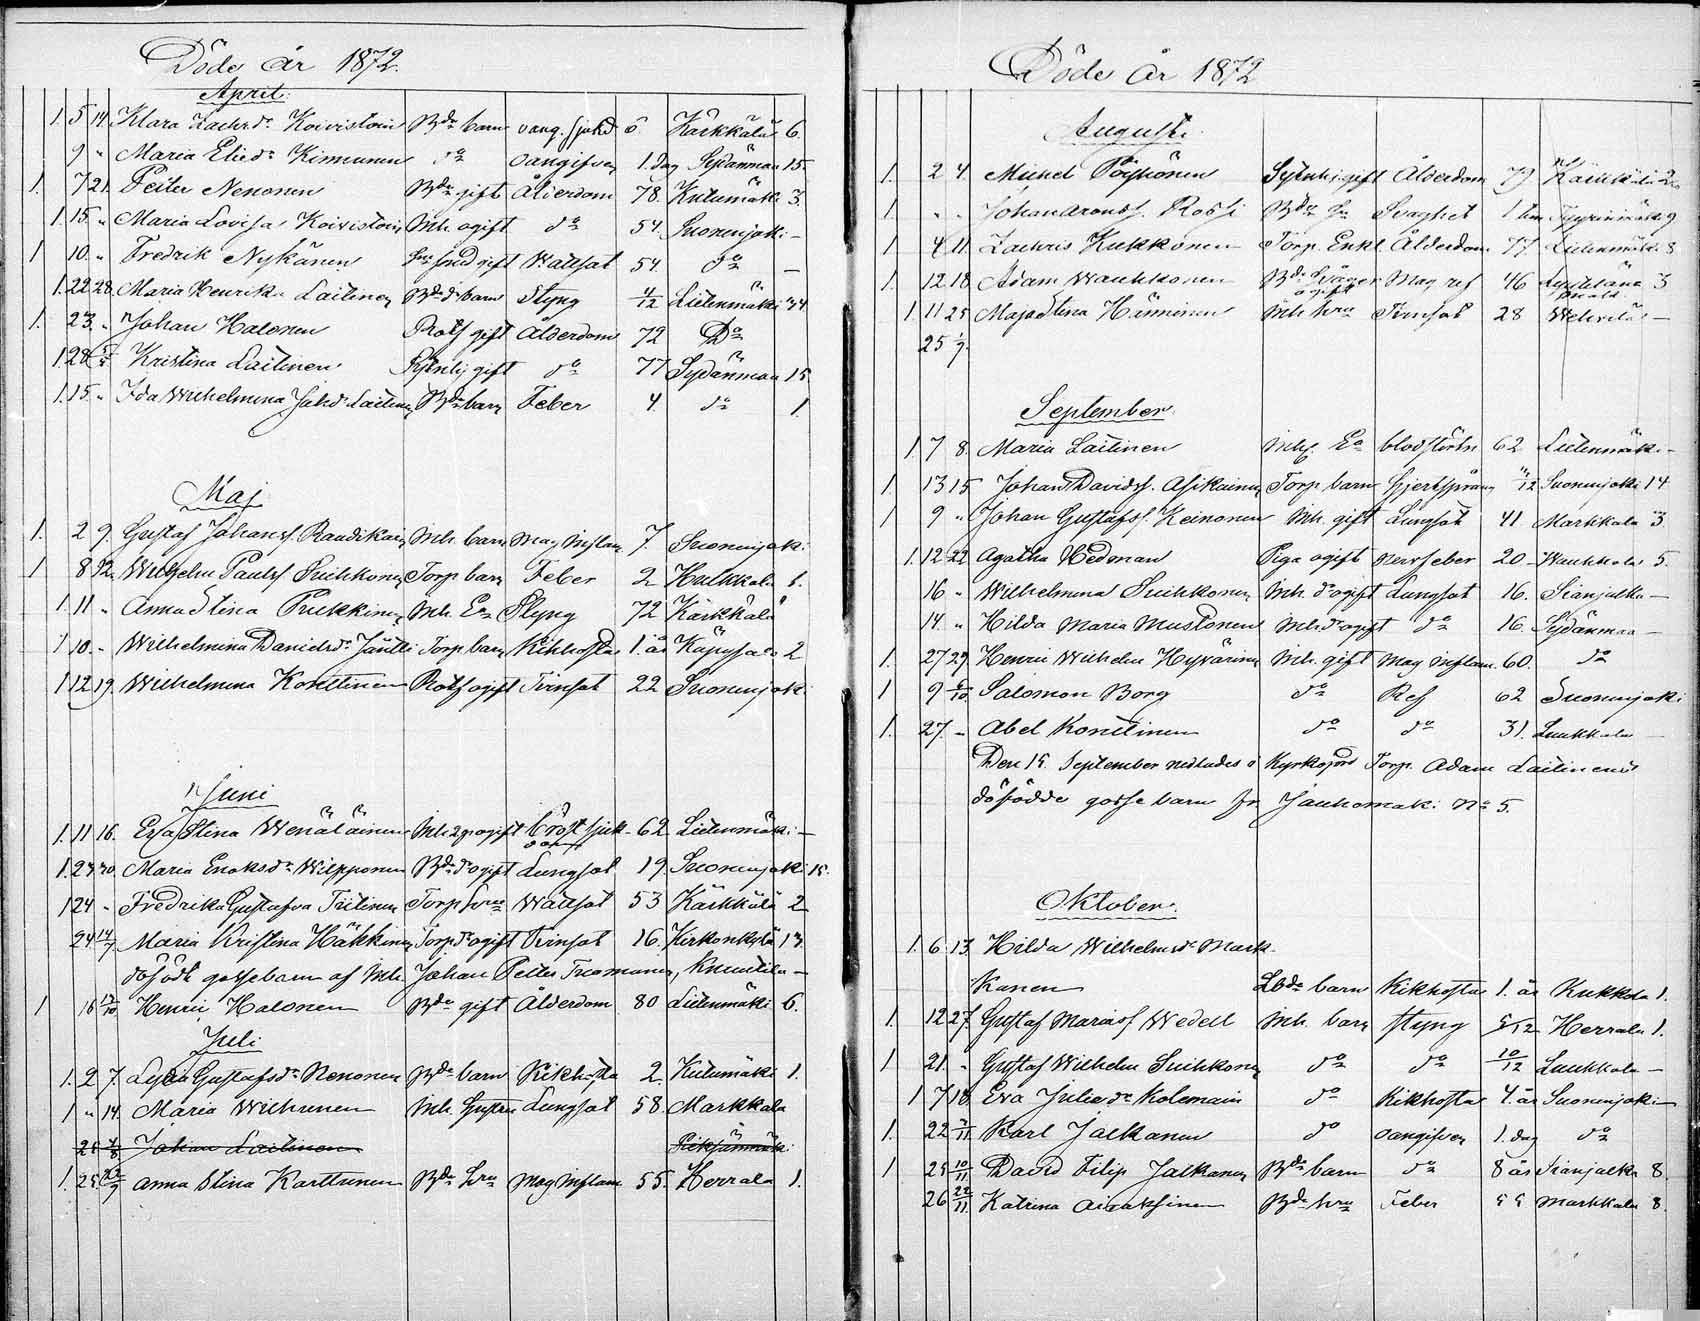 Döde år 1872.
April.
1. 5 14. Klara Zachrdr Koivistoin Bdr barn oang. sjukd 6. Kärkkälä 6.
9 " Maria Eliedr Kinnunen do oangifven 1. dag Sydänmaa 15.
1. 7 21. Petter Nenonen Bdr gift Ålderdom 78. Kutumäki 3.
1. 15. " Maria Lovisa Koivistoin Inh. ogift do 54. Suonenjoki -
1 10. " Fredrik Nykänen gift Wattsot 54. do -
1. 22 28. Maria Henrika Laitinen Bdr barn Styng 4/12 Lietenmäki
1. 23. " Johan Halonen Rotf gift Ålderdom 72 Do
1. 28 Kristina Laitinen gift do 77 Sydänmaa 15
1. 15. " Ida Wilhelmina Johdr Laitinen Bdr barn Feber 4. do 1
Maj
1. 2 9. Gustaf Johanss. Raudikain Inh. barn mag inflam 7. Suonenjoki.
1 8 12. Wilhelm Paulss Suihkonen Torp barn Feber 2 Hulkkola 1.
1. 11 " Anna Stina Pukkinen Inh. Ea Styng 72 Kärkkälä
1 10. " Wilhelmina Danielsdr Jäntti Torp barn Kikhosta 1. år Käpysalo 2
1 12 19. Wilhelmina Konttinen Rotf ogift Tvinsot 22 Suonenjoki.
Juni
1. 11 16. Eva Stina Wenäläinen Inh. ogift bröstsjuk 62 Lietenmäki -
1. 23 30. Maria Enoksdr Wilpponen Bdr dr ogift Lungsot 19 Suonenjoki 15.
1 24 " Fredrika Gustafva Tiitinen Torp hru Wattsot 53 Kärkkälä 2
24 14/7 Maria Kristina Häkkinen Torp dr ogift Tvinsot 16. Kirkonkylä 13.
dödfödt gossebarn af Inh. Johan Petter Tuomanen, Kuvatila -
1 16 Henric Halonen Bdr gift Ålderdom 80 Lietenmäki 6.
Juli
1. 2 7. Gustafsdr Nenonen Bdr barn Kikhosta 2. Kutumäki 1.
1 " 14. Maria Wihunen Inh. hustru Lungsot 58. Markkala
25 4/8 Johan Laitinen Pieksänmäki
1. 25 Anna Stina Karttunen Bdr hru Mag inflam 55. Herrala 1.
Döde år 1872
Augusti.
1. 2 4. Michel Pöyhönen gift Ålderdom 79 Kärkkälä 2
1 " " Johan Aronss. Rossi Bdr Svaghet 1 tim Tyyrinmäki 9
1 4 11. Zachris Kukkonen Torp. Enkl Ålderdom 77. Lietenmäki 8
1 12 18. Adam Wauhkonen Bdr Svåger ogift Mag ref 46 3
1. 11 25 Maja Stina Hänninen Inh hru Tvinsot 28 Wehvilä -
25 1/9.
September.
1. 7 8. Maria Laitinen Inh. Ea blodstörtn 62 Lietenmäki -
1 13 15 Johan Davidss. Asikainen Torp barn hjertsprång 11/12 Suonenjoki 14
1 9 " Johan Gustafss. Keinonen Inh. gift Lungsot 41 Markkala 3
1. 12 22 Agatha Hedman Piga ogift nervfeber 20 Waukkola 5.
16 " Wilhelmina Suihkonen Inh. dr ogift Lungsot 16. Sianjalka -
14. " Hilda Maria Mustonen Inh. dr ogift do 16. Sydänmaa -
1. 27 29. Henric Wilhelm Hyvärinen Inh. gift Mag inflam. 60. do
1 9 6/10. Salomon Borg do Ref 62 Suonenjoki
1. 27. - Abel Konttinen do do 31. Luukkola -
Den 15. September nedlades å Kyrkojord Torp. Adam Laitinens
dödfödde gosse barn fr Jauhomäki No 5.
Oktober.
1. 6 13. Hilda Wilhelmsdr Mark-
kanen Lbdr barn Kikhosta 1. år Kukkola 1.
1. 12 27. Gustaf Mariass Wedell Inh. barn styng 5/12 Herrala 1.
1 21. " Gustaf Wilhelm Suihkonen do do 10/12 Luukkola -
1 7 18. Eva Juliadr Kolemain do Kikhosta 4. år Suonenjoki -
1. 22 3/11 Karl Jalkanen do oangifven 1. dag do
1 25 10/11 David Filip Jalkanen Bdr barn do 8 år Sianjalka 8.
26 22/11 Katrina Airaksinen Bdr hru Feber 55 Markkala 8.